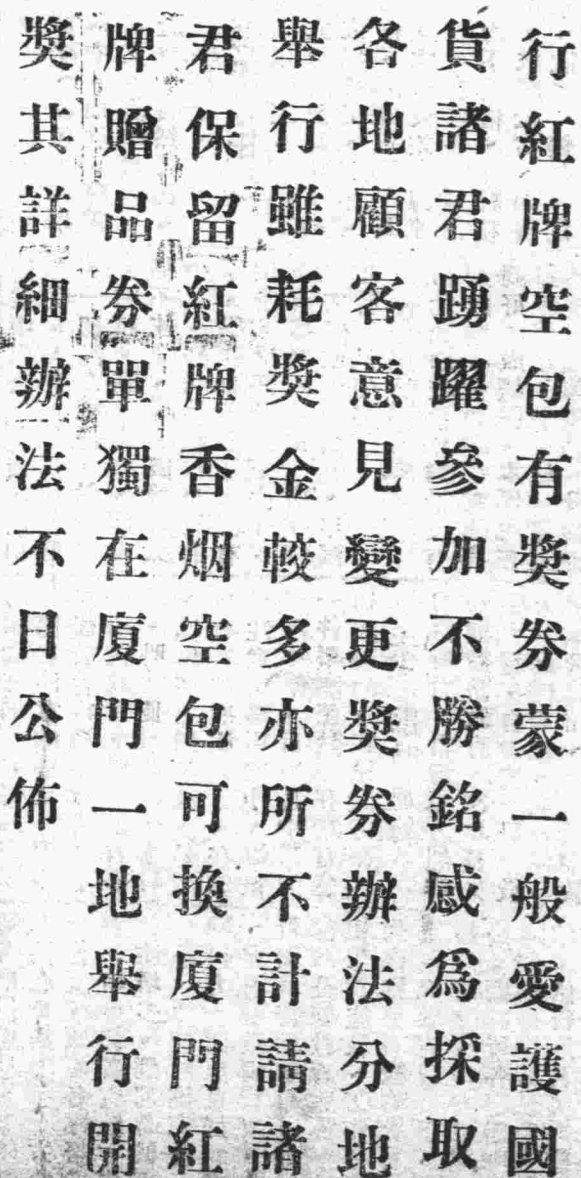 行紅牌空包有獎券蒙一般愛護國
貨諸君踴躍參加不勝銘感爲採取
各地顧客意見變更獎券辦法分地
舉行雖耗獎金較多亦所不計請諸
君保留紅牌香烟空包可換廈門紅
牌贈品券單獨在廈門一地舉行開
獎其詳細辦法不日公佈